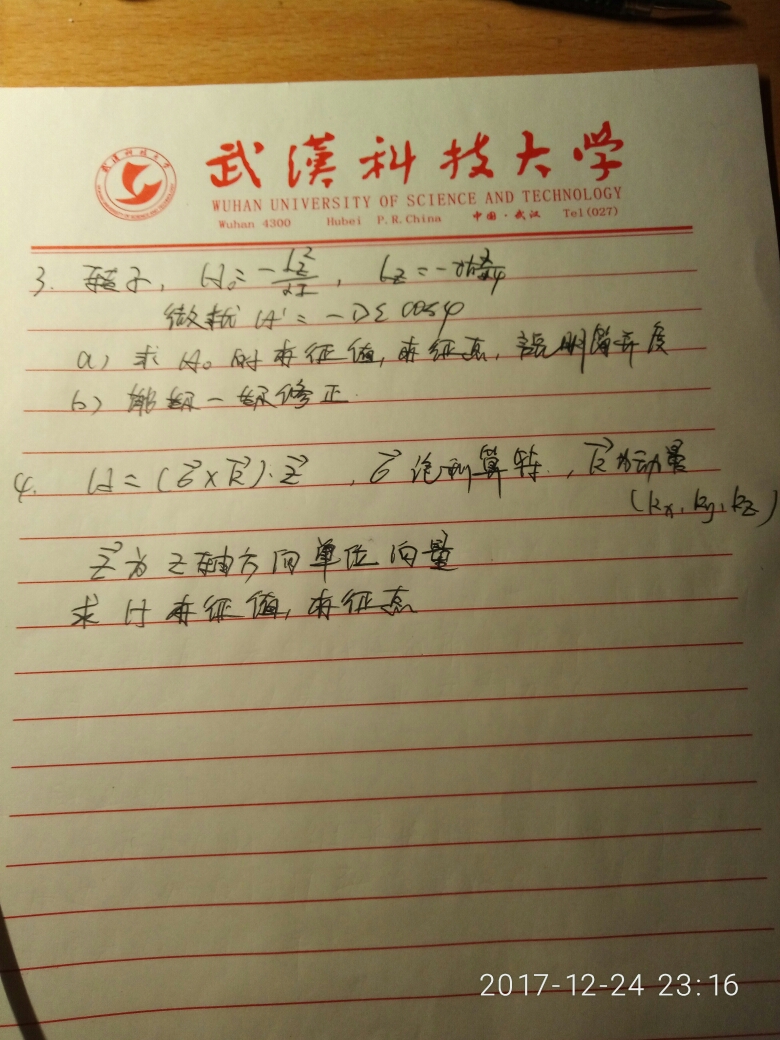 武漢科技大学
WUHAN UNIVERSITY OF SCIENCE AND TECHNOLOGY
Wuhan 4300 Hubei P.R.China 中国·武汉 Tel(027)
3. 转子, H₀ = -L_z²/2I, L_z = -iħ∂/∂φ
微扰 H' = -Dε cosφ
a) 求 H₀ 的本征值, 本征态, 说明简并度
b) 能级一级修正.
4. H = (σ⃗×k⃗)·z⃗, σ⃗ 泡利算符, k⃗ 为动量
(kx, ky, kz)
z⃗ 为 z轴方向单位向量
求 H 本征值, 本征态
2017-12-24 23:16